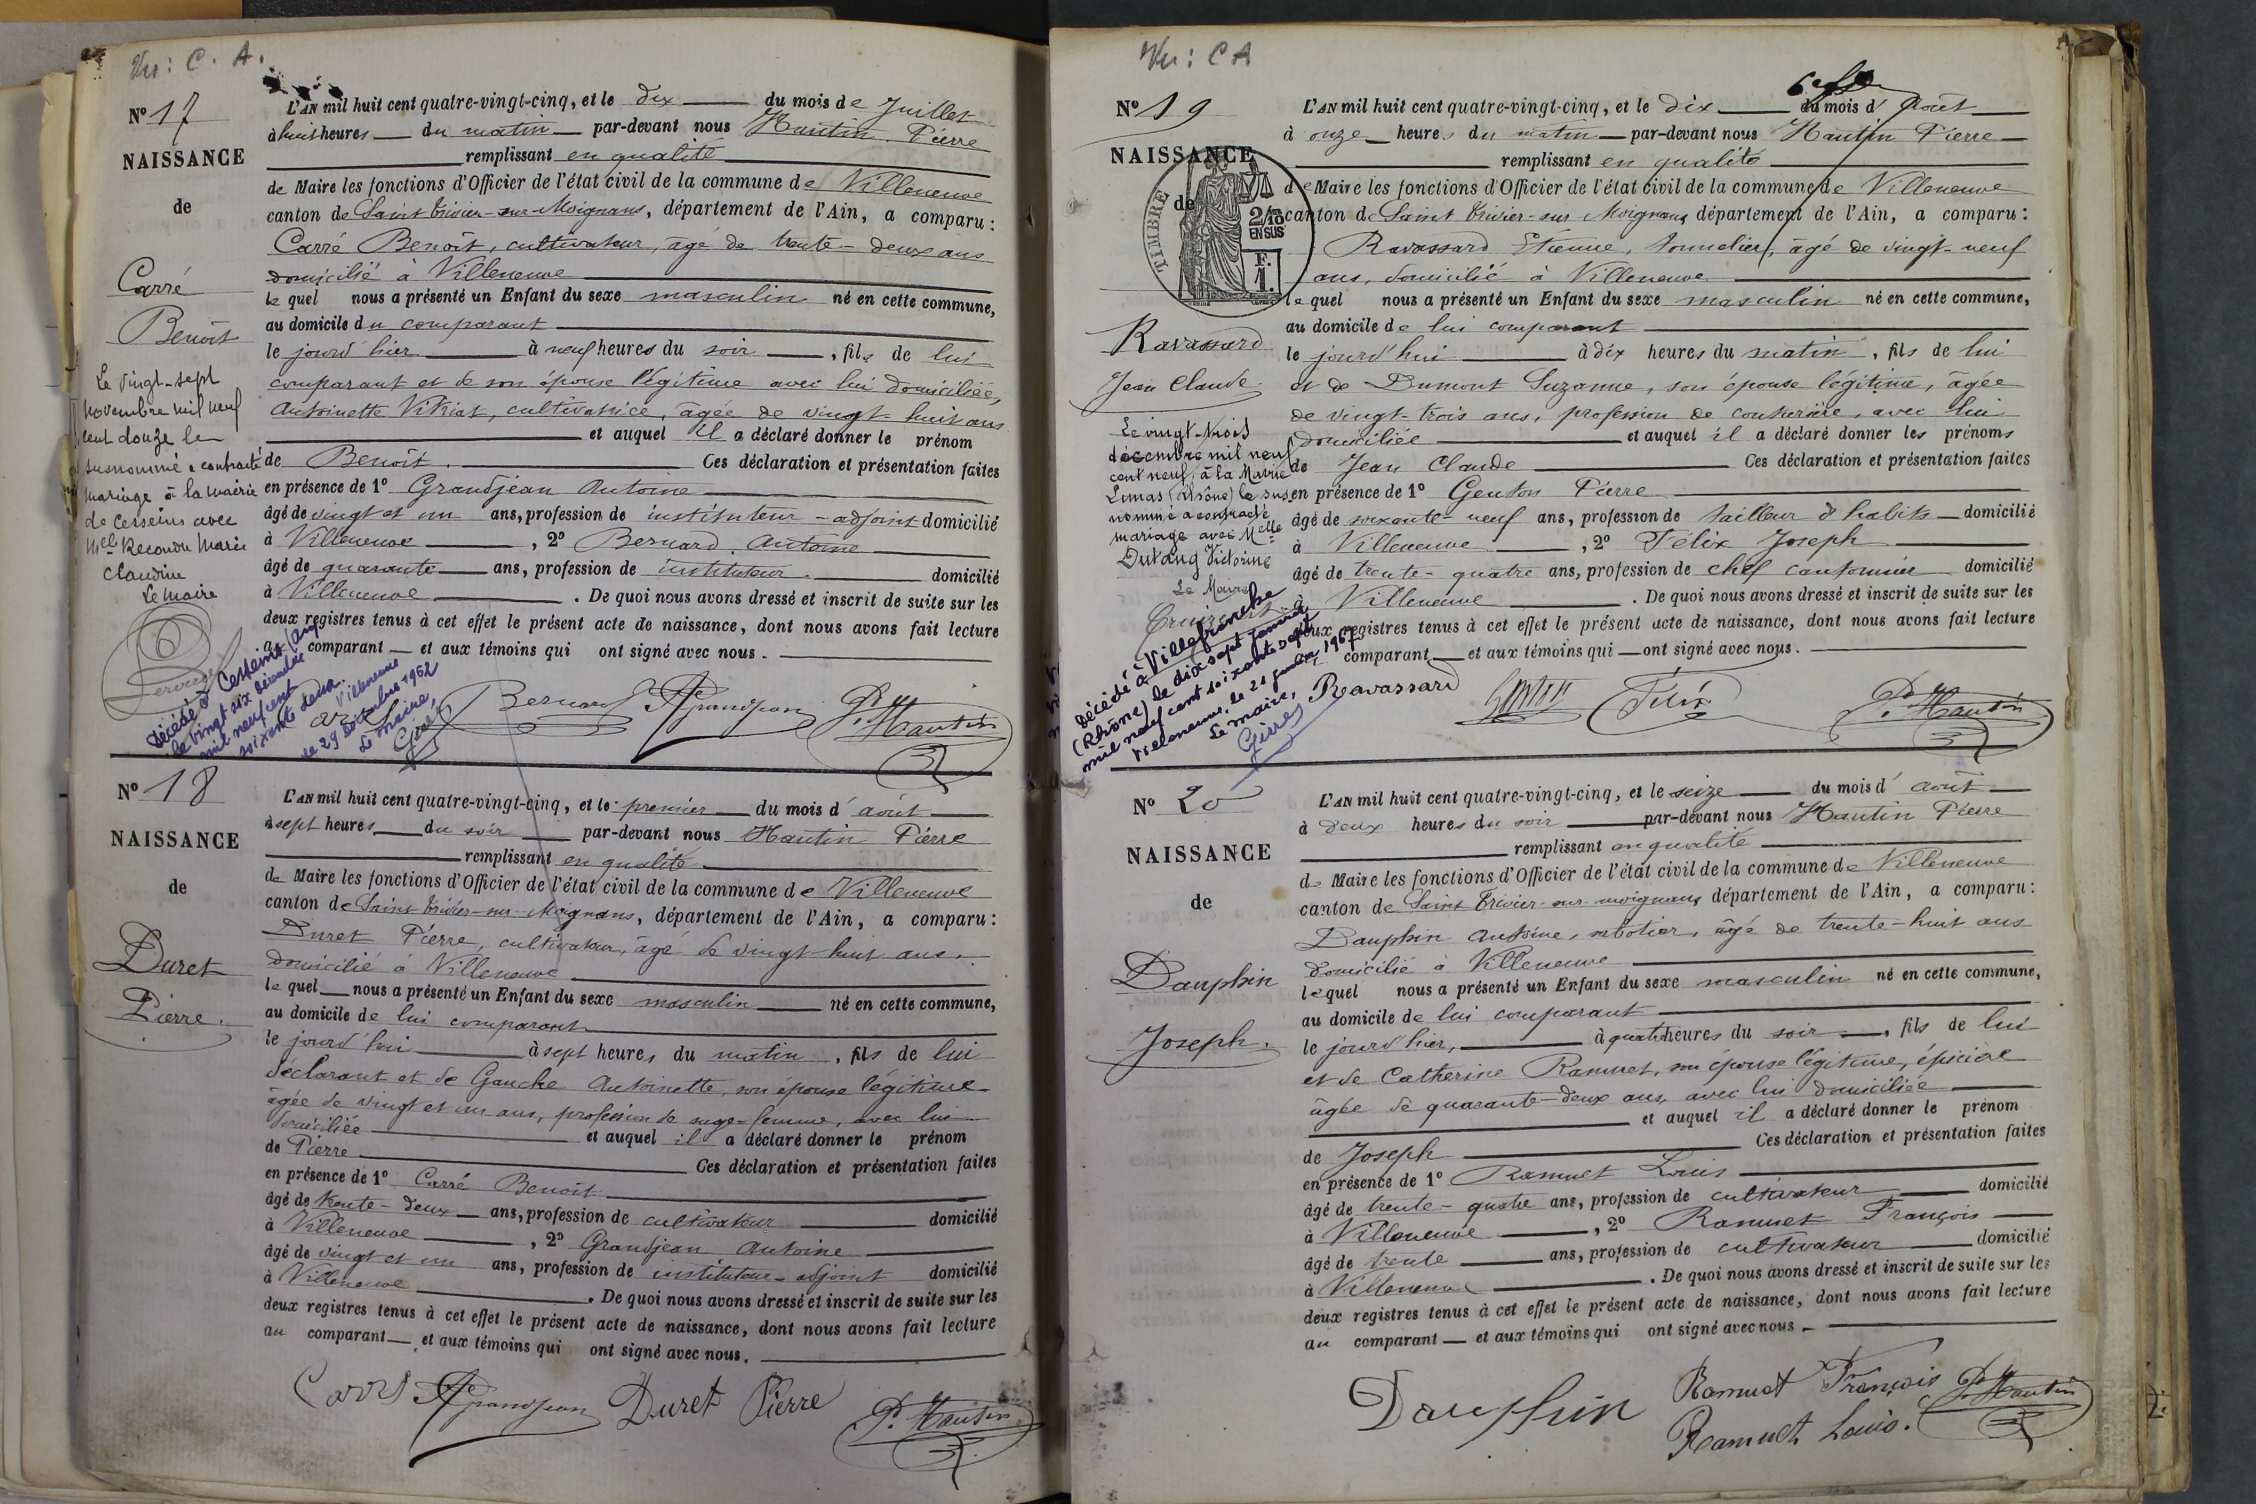 Vu : C. A.
N° 17
NAISSANCE
de
Carré
Benoît
Le vingt-sept
novembre mil neuf
cent douze le
susnommé a contracté
mariage à la mairie
de Cesseins avec
Melle Recondu Marie
Claudine
Le Maire
Décédé à Cesseins (Ain)
le vingt six décembre
mil neuf cent
soixante deux.
Villeneuve
le 29 Décembre 1962
Le Maire,
L'AN mil huit cent quatre-vingt-cinq, et le dix du mois de Juillet
à huit heures du matin par-devant nous Hautin Pierre
remplissant en qualité
de Maire les fonctions d'Officier de l'état civil de la commune de Villeneuve
canton de Saint Trivier-sur-Moignans, département de l'Ain, a comparu :
Carré Benoît, cultivateur, âgé de trente-deux ans
domicilié à Villeneuve
le quel nous a présenté un Enfant du sexe masculin né en cette commune,
au domicile du comparant
le jourd'hier à neuf heures du soir, fils de lui
comparant et de son épouse légitime avec lui domiciliée,
Antoinette Vitriat, cultivatrice, âgée de vingt-huit ans
et auquel il a déclaré donner le prénom
de Benoît. Ces déclaration et présentation faites
en présence de 1° Grandjean Antoine
âgé de vingt et un ans, profession de instituteur-adjoint domicilié
à Villeneuve, 2° Bernard Antoine
âgé de quarante ans, profession de instituteur. domicilié
à Villeneuve. De quoi nous avons dressé et inscrit de suite sur les
deux registres tenus à cet effet le présent acte de naissance, dont nous avons fait lecture
au comparant et aux témoins qui ont signé avec nous.
Bernard AGrandjean P. Hautin
N° 18
NAISSANCE
de
Duret
Pierre.
L'AN mil huit cent quatre-vingt-cinq, et le premier du mois d'août
à sept heures du soir par-devant nous Hautin Pierre
remplissant en qualité
de Maire les fonctions d'Officier de l'état civil de la commune de Villeneuve
canton de Saint Trivier-sur-Moignans, département de l'Ain, a comparu :
Duret Pierre, cultivateur, âgé de vingt-huit ans.
domicilié à Villeneuve
le quel nous a présenté un Enfant du sexe masculin né en cette commune,
au domicile de lui comparant
le jourd'hui à sept heures du matin, fils de lui
déclarant et de Gauche Antoinette, son épouse légitime
âgée de vingt et un ans, profession de sage-femme, avec lui
domiciliée et auquel il a déclaré donner le prénom
de Pierre Ces déclaration et présentation faites
en présence de 1° Carré Benoît
âgé de trente-deux ans, profession de cultivateur domicilié
à Villeneuve, 2° Grandjean Antoine
âgé de vingt et un ans, profession de instituteur-adjoint domicilié
à Villeneuve. De quoi nous avons dressé et inscrit de suite sur les
deux registres tenus à cet effet le présent acte de naissance, dont nous avons fait lecture
au comparant et aux témoins qui ont signé avec nous.
Carré AGrandjean Duret Pierre P. Hautin
Vu : CA
N° 19
NAISSANCE
de
TIMBRE
2/10
EN SUS
F.
1.
Ravassard
Jean Claude
Le vingt-trois
décembre mil neuf
cent neuf, à la Mairie
Limas (Rhône) le sus
nommé a contracté
mariage avec Melle
Dutang Victorine
Le Maire
Décédé à Villefranche
(Rhône) le dix sept janvier
mil neuf cent soixante sept
Villeneuve, le 21 janvier 1967
Le Maire,
L'AN mil huit cent quatre-vingt-cinq, et le dix du mois d'Août
à onze heures du matin par-devant nous Hautin Pierre
remplissant en qualité
de Maire les fonctions d'Officier de l'état civil de la commune de Villeneuve
canton de Saint Trivier-sur-Moignans département de l'Ain, a comparu :
Ravassard Etienne, tonnelier, âgé de vingt-neuf
ans, domicilié à Villeneuve
le quel nous a présenté un Enfant du sexe masculin né en cette commune,
au domicile de lui comparant
le jourd'hui à dix heures du matin, fils de lui
et de Dumont Suzanne, son épouse légitime, âgée
de vingt-trois ans, profession de couturière, avec lui
domiciliée et auquel il a déclaré donner les prénoms
de Jean Claude Ces déclaration et présentation faites
en présence de 1° Genton Pierre
âgé de soixante-neuf ans, profession de tailleur d'habits domicilié
à Villeneuve, 2° Félix Joseph
âgé de trente-quatre ans, profession de chef cantonnier domicilié
à Villeneuve. De quoi nous avons dressé et inscrit de suite sur les
deux registres tenus à cet effet le présent acte de naissance, dont nous avons fait lecture
comparant et aux témoins qui ont signé avec nous.
Ravassard Genton Félix P. Hautin
N° 20
NAISSANCE
de
Dauphin
Joseph.
L'AN mil huit cent quatre-vingt-cinq, et le seize du mois d'août
à deux heures du soir par-devant nous Hautin Pierre
remplissant en qualité
de Maire les fonctions d'Officier de l'état civil de la commune de Villeneuve
canton de Saint Trivier-sur-moignans département de l'Ain, a comparu :
Dauphin Antoine, sabotier, âgé de trente-huit ans
domicilié à Villeneuve
lequel nous a présenté un Enfant du sexe masculin né en cette commune,
au domicile de lui comparant
le jourd'hier, à quatre heures du soir, fils de lui
et de Catherine Ramuet, son épouse légitime, épicière
âgée de quarante-deux ans, avec lui domiciliée
et auquel il a déclaré donner le prénom
de Joseph Ces déclaration et présentation faites
en présence de 1° Ramuet Louis
âgé de trente-quatre ans, profession de cultivateur domicilié
à Villeneuve, 2° Ramuet François
âgé de trente ans, profession de cultivateur domicilié
à Villeneuve. De quoi nous avons dressé et inscrit de suite sur les
deux registres tenus à cet effet le présent acte de naissance, dont nous avons fait lecture
au comparant et aux témoins qui ont signé avec nous.
Dauphin Ramuet François P. Hautin
Ramuet Louis.